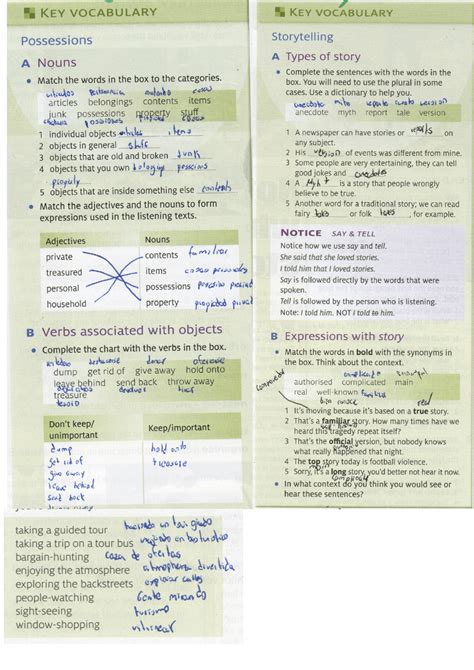 KEY VOCABULARY
Possessions
A Nouns
• Match the words in the box to the categories.
articles belongings contents items
junk possessions property stuff
1 individual objects articles items
2 objects in general stuff
3 objects that are old and broken junk
4 objects that you own
5 objects that are inside something else contents
• Match the adjectives and the nouns to form
expressions used in the listening texts.
Adjectives Nouns
private contents
treasured items
personal possessions
household property
B Verbs associated with objects
• Complete the chart with the verbs in the box.
dump get rid of give away hold onto
leave behind send back throw away
treasure
tesoro
Don't keep/ Keep/important
unimportant
dump hold onto
get rid of treasure
give away
leave behind
send back
taking a guided tour
taking a trip on a tour bus
bargain-hunting caza de ofertas
enjoying the atmosphere
exploring the backstreets
people-watching
sight-seeing turismo
window-shopping
KEY VOCABULARY
Storytelling
A Types of story
• Complete the sentences with the words in the
box. You will need to use the plural in some
cases. Use a dictionary to help you.
anecdote myth report tale version
1 A newspaper can have stories or reports on
any subject.
2 His version of events was different from mine.
3 Some people are very entertaining, they can tell
good jokes and anecdotes
4 A myth is a story that people wrongly
believe to be true.
5 Another word for a traditional story; we can read
fairy tales or folk tales, for example.
NOTICE SAY & TELL
Notice how we use say and tell.
She said that she loved stories.
I told him that I loved stories.
Say is followed directly by the words that were
spoken.
Tell is followed by the person who is listening.
Note: I told him. NOT I told to him.
B Expressions with story
• Match the words in bold with the synonyms in
the box. Think about the context.
authorised complicated main
real well-known
real
1 It's moving because it's based on a true story.
2 That's a familiar story. How many times have we
heard this tragedy repeat itself?
3 That's the official version, but nobody knows
what really happened that night.
4 The top story today is football violence.
5 Sorry, it's a long story, you'd better not hear it now.
• In what context do you think you would see or
hear these sentences?